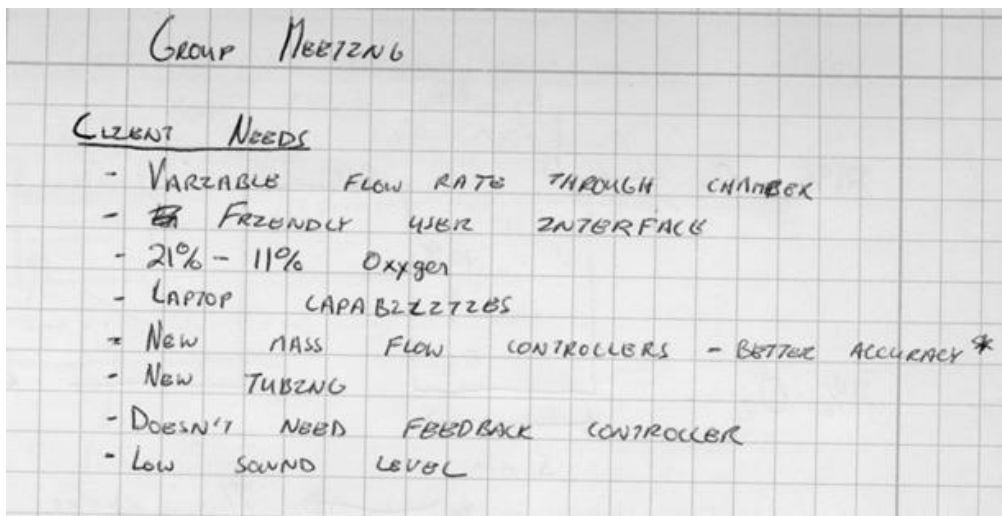 GROUP MEETING
CLIENT NEEDS
- VARIABLE FLOW RATE THROUGH CHAMBER
- FRIENDLY USER INTERFACE
- 21% - 11% Oxygen
- LAPTOP CAPABILITIES
- NEW MASS FLOW CONTROLLERS - BETTER ACCURACY *
- NEW TUBING
- DOESN'T NEED FEEDBACK CONTROLLER
- LOW SOUND LEVEL